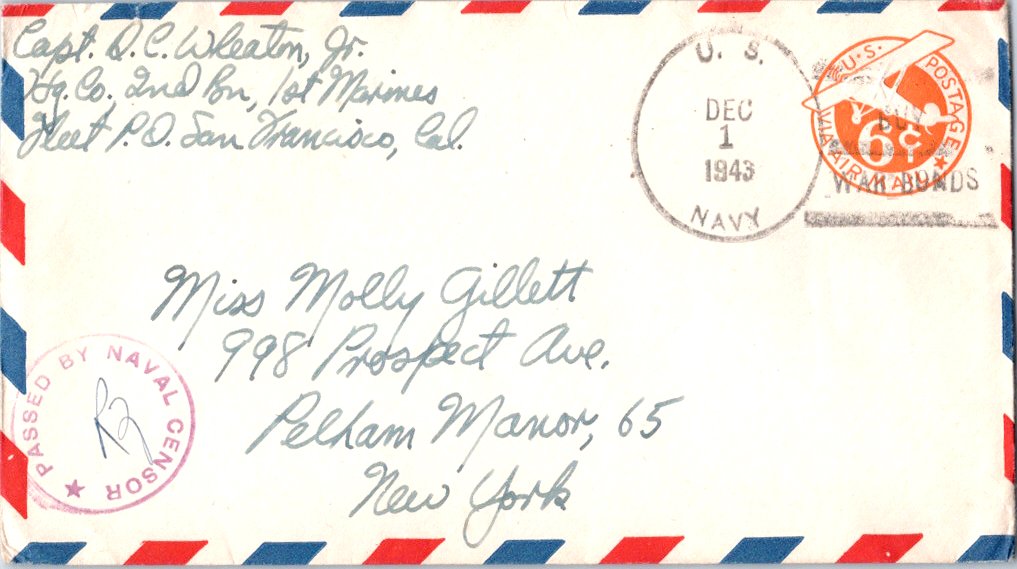 Capt. D. C. Wheaton, Jr.
Hq. Co., 2nd Bn, 1st Marines
Fleet P.O. San Francisco, Cal.
U. S.
DEC
1
1943
NAVY
BUY
WAR BONDS
U.S. POSTAGE
6¢
VIA AIR MAIL
Miss Molly Gillett
998 Prospect Ave.
Pelham Manor, 65
New York
PASSED BY NAVAL CENSOR